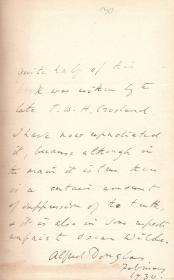 quite half of this
book was written by the
late T. W. H. Crosland
I have now repudiated
it, because although in
the main it is true there
is a certain amount
of suppression of the truth,
& it is also in some respects
unfair to Oscar Wilde.
Alfred Douglas.
February
1930.